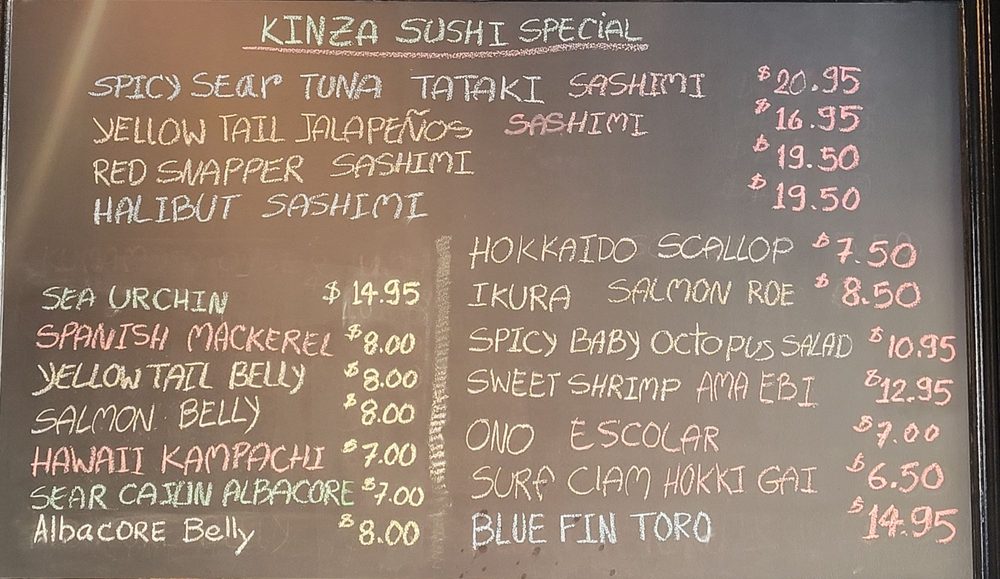 KINZA SUSHI SPECiAL
SPICY SEar TUNA TATAKI SASHIMI $20.95
YELLOW TAIL JALAPEÑOS SASHIMI $16.95
RED SNAPPER SASHIMI $19.50
HALIBUT SASHIMI $19.50
SEA URCHIN $14.95
SPANISH MACKEREL $8.00
YELLOW TAIL BELLY $8.00
SALMON BELLY $8.00
HAWAII KAMPACHI $7.00
SEAR CAJUN ALBACORE $7.00
AlbACORE Belly $8.00
HOKKAIDO SCALLOP $7.50
IKURA SALMON ROE $8.50
SPICY BABY OctoPUS SALAD $10.95
SWEET SHRIMP AMA EBI $12.95
ONO ESCOLAR $7.00
SURF ClAM HOKKI GAI $6.50
BLUE FIN TORO $14.95